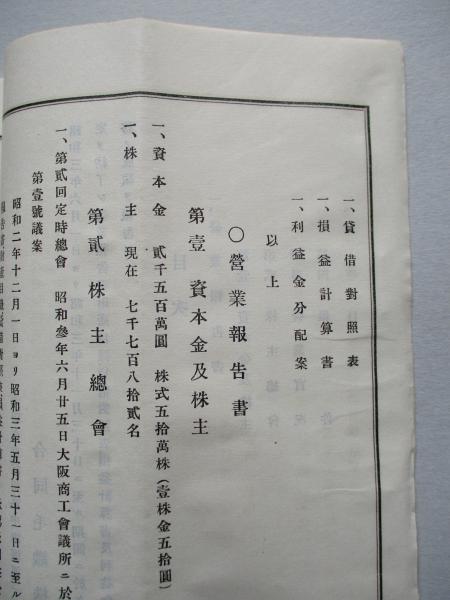 一、貸借對照表
一、損益計算書
一、利益金分配案
以上
〇營業報告書
第壹 資本金及株主
一、資本金 貳千五百萬圓 株式五拾萬株(壹株金五拾圓)
一、株主 現在 七千七百八拾貳名
第貳 株主總會
一、第貳回定時總會 昭和參年六月廿五日大阪商工會議所ニ於
第壹號議案
昭和二年十二月一日ヨリ昭和三年五月三十一日ニ至ル